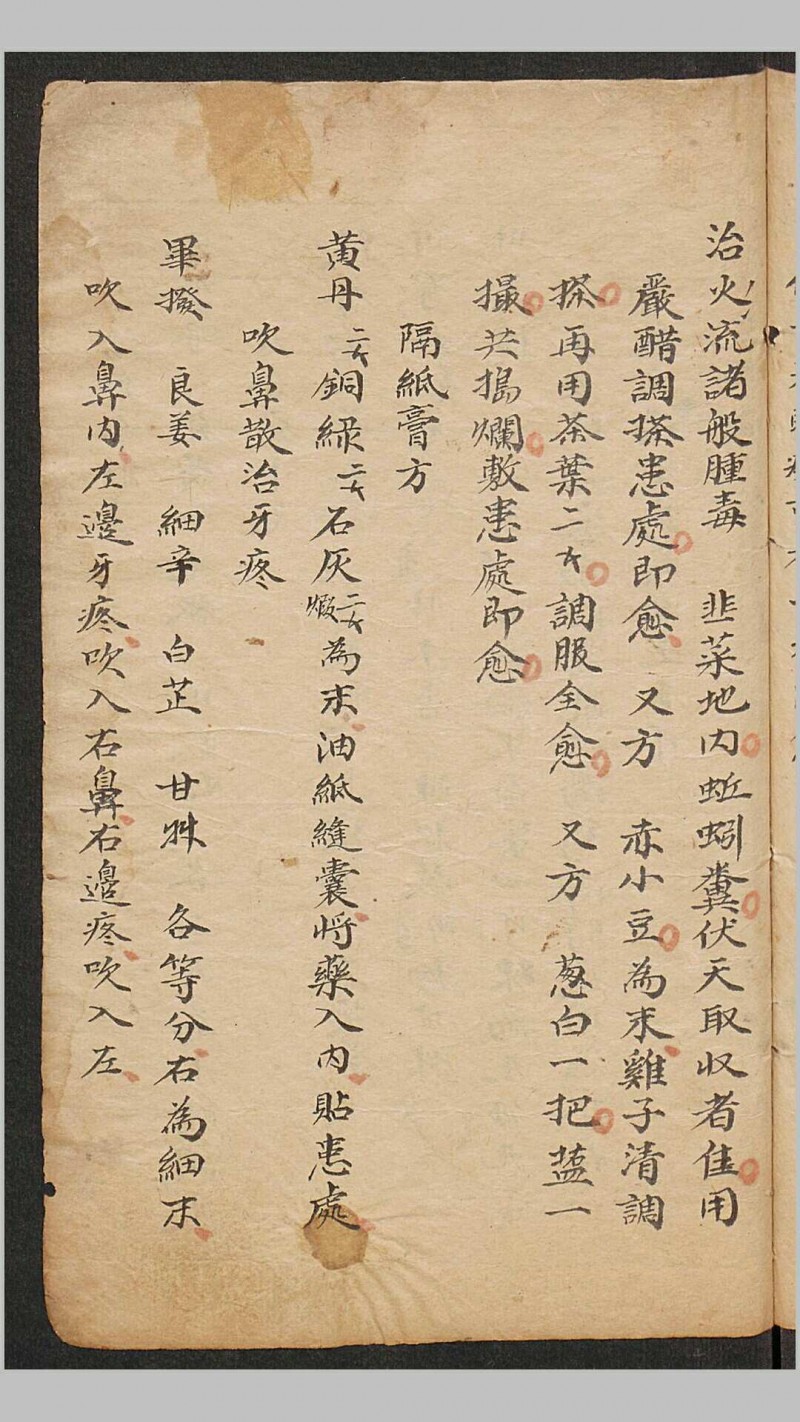 治火流諸般腫毒 韭菜地内蚯蚓糞伏天取収者佳用
嚴醋調搽患處即愈 又方 赤小豆為末雞子清調
搽再用茶葉二錢調服全愈 又方 葱白一把蓝一
撮共搗爛敷患處即愈
隔紙膏方
黄丹二錢銅緑二錢石灰二錢煅為末油紙縫囊將藥入内貼患處
吹鼻散治牙疼
畢撥 良姜 細辛 白芷 甘艸 各等分右為細末
吹入鼻内左邊牙疼吹入右鼻右邊疼吹入左